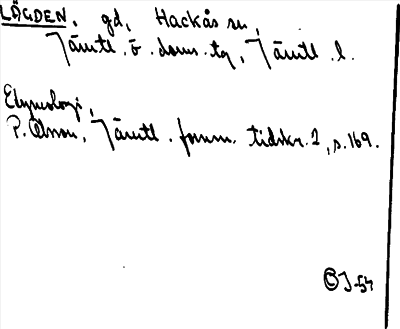 LÄGDEN, gd, Hackås sn,
Jämtl. ö. doms. tg, Jämtl. l.
Etymologi,
P. Olsson, Jämtl. fornm. tidskr. 2, s. 169.
ÖJ-54